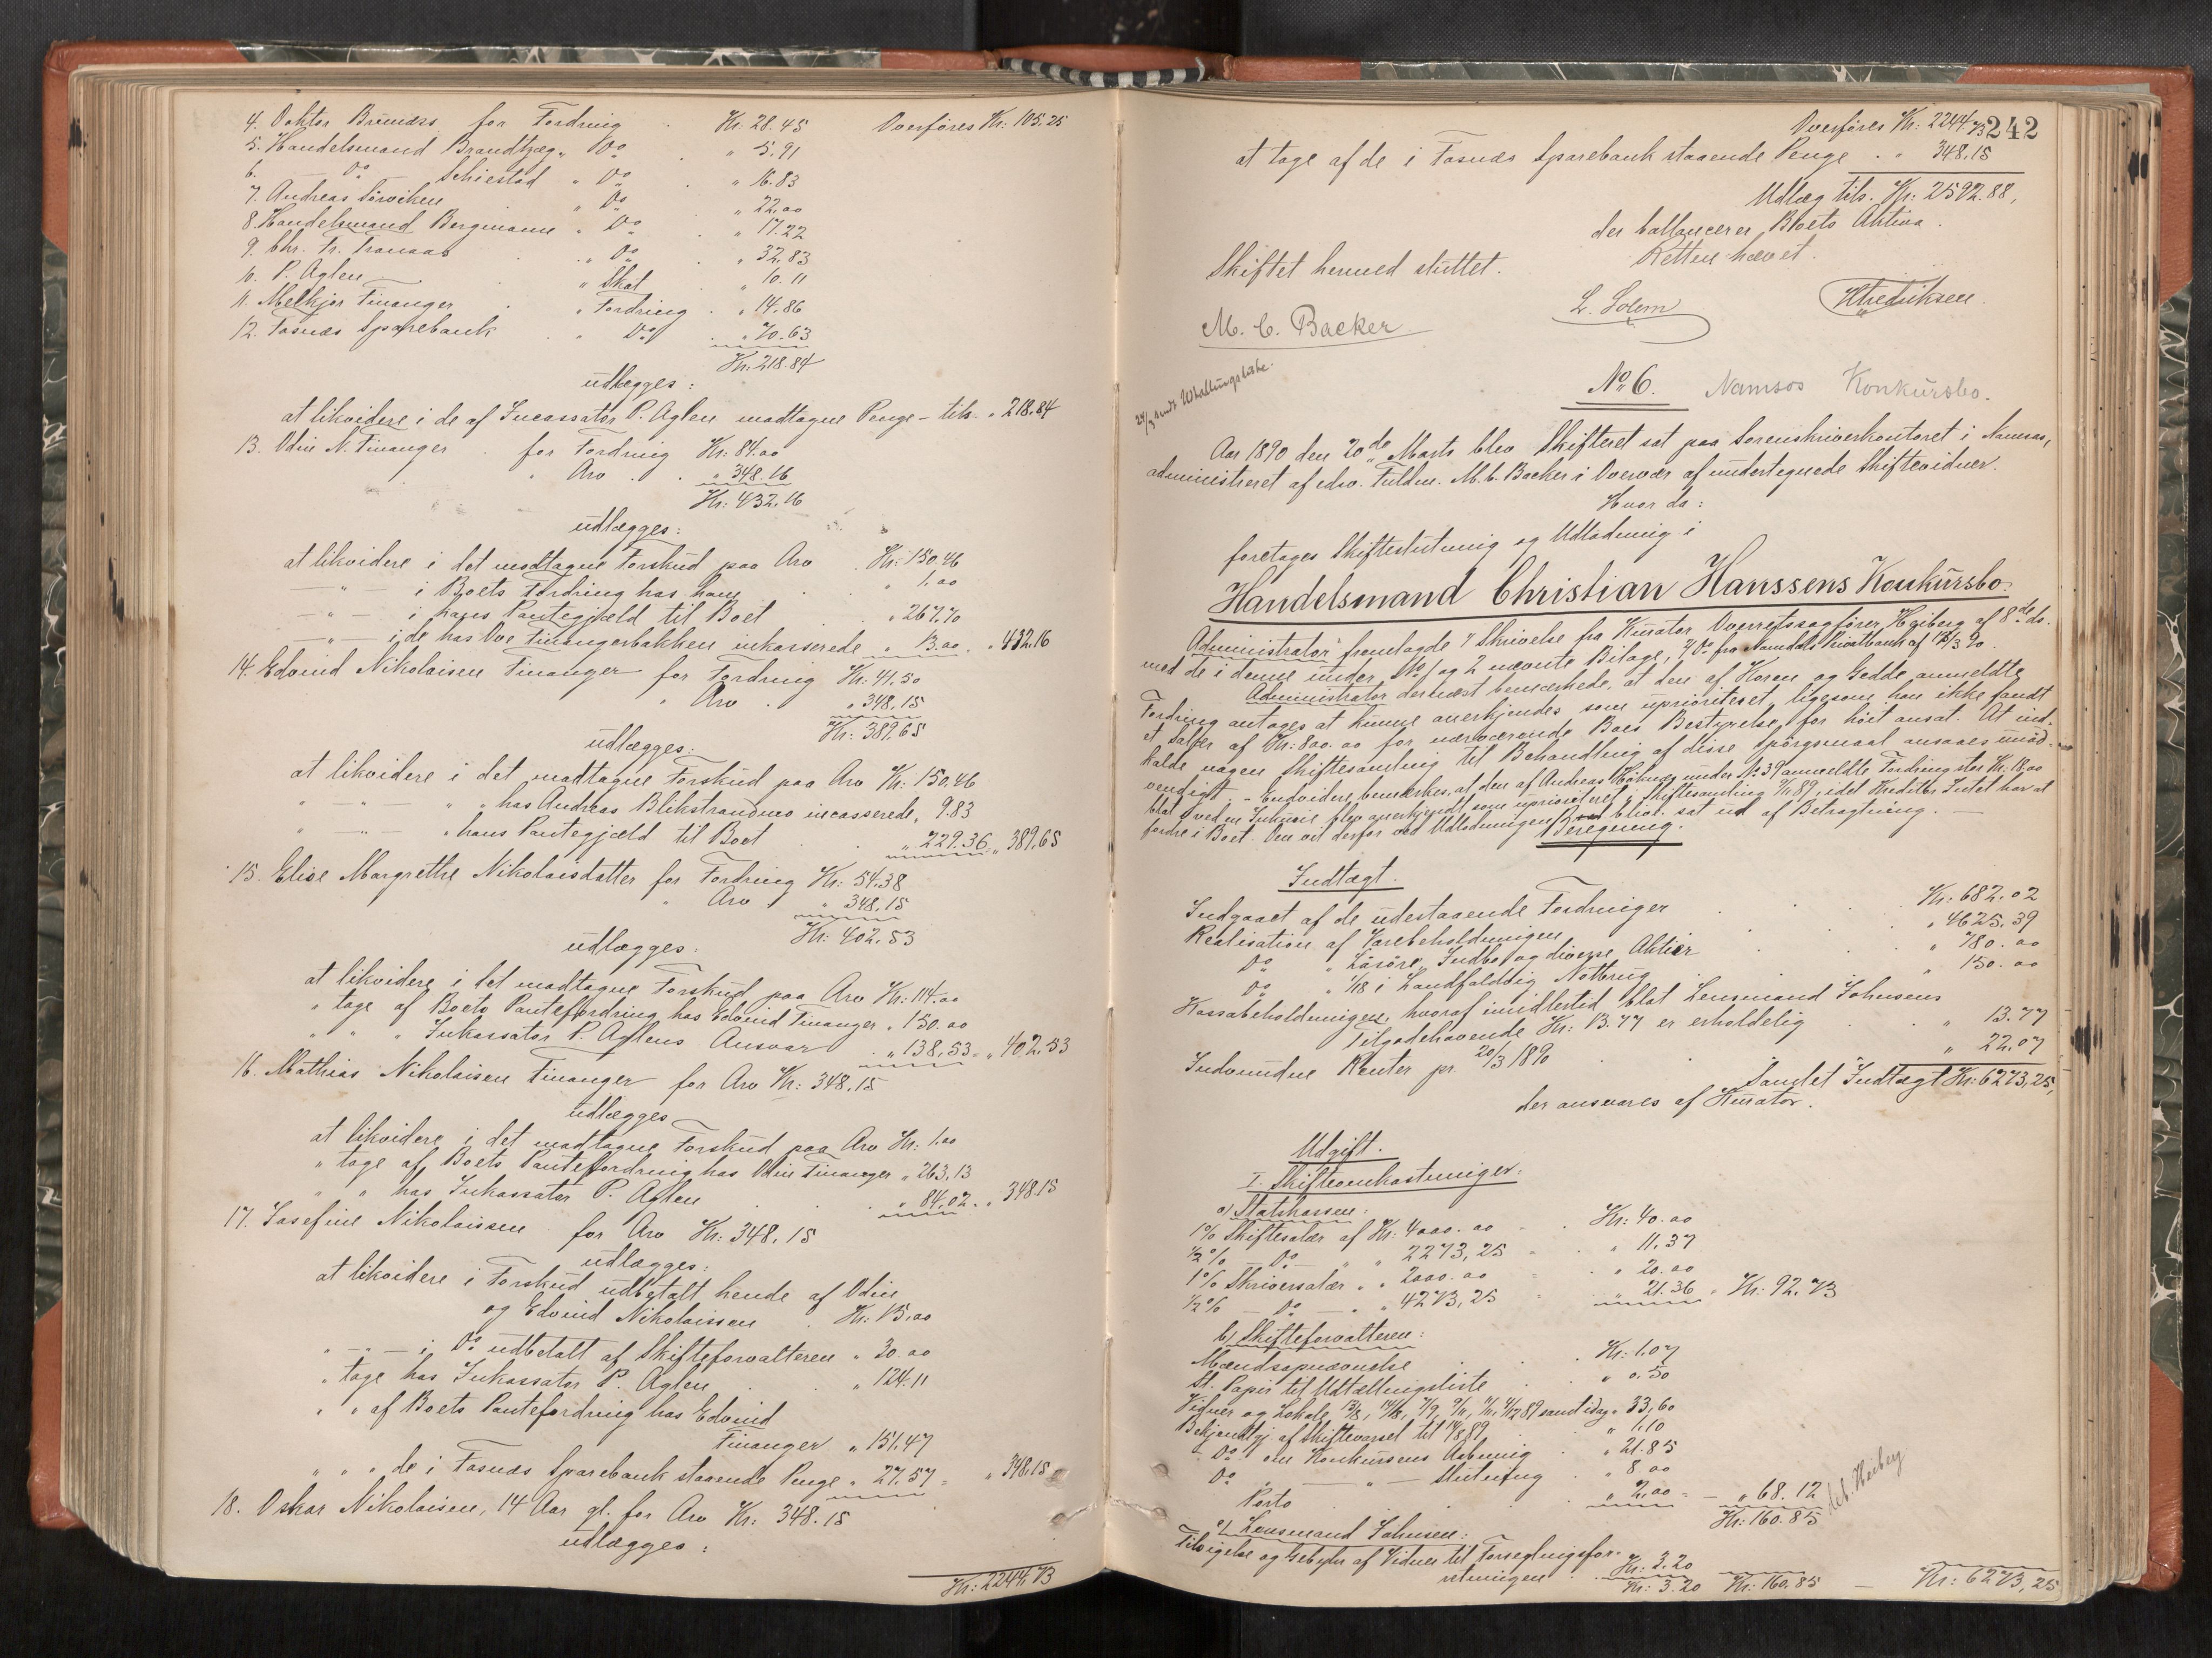 4. Doktor Brunæss for Fordring . Kr. 28.45 Overføres Kr: 105.25
5. Handelsmand Brandtzæg " Do . " 5.91
6. Do Schiestad " Do . " 16.83
7. Andreas Torviken " Do . " 22.00
8. Handelsmand Bergmann " Do . " 17.22
9. Chr. Fr. Tranaas . " Do . " 32.83
10. P. Aglen . " Skat " 10.11
11. Melkjor Finanger . " Fordring . " 14.86
12. Fosnæs Sparebank . " Do . " 70.63
Kr. 218.84
udlægges:
at likvidere i de af Incassator P. Aglen modtagne Penge – tils. " 218.84
13. Odin N. Finanger . for Fordring Kr: 84.00
" Arv . . " 348.16
Kr: 432.16
udlægges:
at likvidere i det modtagne Forskud paa Arv . Kr: 150.46
— " — i Boets Fordring hos ham . " 1.00
— " — i hans Pantegjæld til Boet . " 267.70
— " — i de hos Ove Finangerbakken inkasserede " 13.00. " 432.16
14. Edvind Nikolaisen Finanger for Fordring Kr: 41.50
" Arv . " 348.15
Kr: 389.65
udlægges:
at likvidere i det modtagne Forskud paa Arv Kr: 150.46
" — " — " " hos Andreas Blikstrandmo incasserede " 9.83
" — " — " hans Pantegjæld til Boet . . " 229.36 " 389.65
15. Elise Margrethe Nikolaisdatter for Fordring Kr: 54.38
" Arv " 348.15
Kr: 402.53
udlægges:
at likvidere i det modtagne Forskud paa Arv Kr: 114.00
" tage af Boets Pantefordring hos Edvind Finanger " 150.00
" " " Inkassator P. Aglens Ansvar . " 138.53 = " 402.53
16. Mathias Nikolaisen Finanger for Arv Kr: 348.15
udlægges
at likvidere i det modtagne Forskud paa Arv Kr: 1.00
" tage af Boets Pantefordring hos Odin Finanger " 263.13
" " hos Inkassator P. Aglen . . " 84.02 . " 348.15
17. Josefine Nikolaissen for Arv Kr: 348.15
udlægges:
at likvidere i Forskud udbetalt hende af Odin
og Edvind Nikolaissen . Kr: 15.00
" — " — i Do udbetalt af Skifteforvalteren " 30.00
" tage hos Inkassator P. Aglen . . " 124.11
" " af Boets Pantefordring hos Edvind
Finanger " 151.47
" " " de i Fosnæs Sparebank staaende Penge " 27.57 = " 348.15
18. Oskar Nikolaisen, 14 Aar gl. for Arv Kr: 348.15
udlægges:
Kr: 2244.73
Overføres Kr: 2244.73 242
at tage af de i Fosnæs Sparebank staaende Penge . . " 348.15
Udlæg tils. Kr: 2592.88,
der ballancerer Boets Aktiva.
Skiftet hermed sluttet. Retten hævet.
M. C. Backer L. Solem HFredriksen
No 6. Namsos Konkursbo.
Aar 1890 den 20de Marts blev Skifteret sat paa Sorenskriverkontoret i Namsos,
administreret af edsv. Fuldm. M. C. Backer i Overvær af undertegnede Skiftevidner.
Hvor da:
foretages Skifteslutning og Udlodning i
Handelsmand Christian Hanssens Konkursbo.
Administrator fremlagde 1 Skrivelse fra Kurator Overretssagfører Heiberg af 8de ds.
med de i denne under No 1 og 2 nævnte Bilage, 1 Do fra Namdals Privatbank af 13/3 90.
Administrator dernæst bemærkede, at den af Koren og Gedde anmeldte
Fordring antages at kunne anerkjendes som uprioriteret, ligesom han ikke fandt
et Salær af Kr: 800.00 for nærværende Boes Bestyrelse, for høit ansat. At ind-
kalde nogen Skiftesamling til Behandling af disse Spørgsmaal ansaaes unød-
vendigt. – Endvidere bemærkes, at den af Andreas under No 39 anmeldte Fordring stor Kr: 18.00
blot ved en Inkurie blev anerkjendt som uprioriteret i Skiftesamling 9/11 89, idet Kreditor Intet har at
fordre i Boet. Den vil derfor ved Udlodningen blive sat ud af Betragtning. —
Beregning.
Indtægt.
Indgaaet af de udestaaende Fordringer . . . Kr: 682.02
Realisation af Varebeholdningen . . . " 4625.39
Do " Løsøre, Indbo og diverse Aktier . . " 780.00
Do " 1/18 i Landfaldvig Notbrug . . . " 150.00
Kassabeholdningen, hvoraf imidlertid blot Lensmand Johnsens
Tilgodehavende Kr: 13.77 er erholdelig . . " 13.77
Indvundne Renter pr. 20/3 1890 . . . " 22.07
Samlet Indtægt Kr: 6273,25,
der ansvares af Kurator.
Udgift.
I. Skifteomkostninger:
a) Statskassen:
1% Skiftesalær af Kr: 4000.00 . . Kr: 40.00
1/2% — Do " " 2273,25 . . " 11.37
1% Skriversalær " " 2000.00 . . " 20.00
1/2% — Do — " " 4273,25 . . " 21.36 " Kr: 92.73
b) Skifteforvalteren:
Mændsopnævnelse . . . Kr: 1.07
St. Papir til Udtællingsliste . . " 0.50
samt idag " 33.60
Bekjendtgj. af Skiftevarsel . . " 1.10
" Do " om Konkursens Aabning . " 21.85
Do " — " — Slutning . " 8.00
Porto . . . " 2.00 = — " 68.12
Kr: 160.85
c) Lensmand Johnsen:
Tilsigelse og Gebyhr af Vidner til Forseglingsfor-
retningen . Kr: 3.20
Kr: 3.20 Kr: 160.85 — Kr: 6273,25